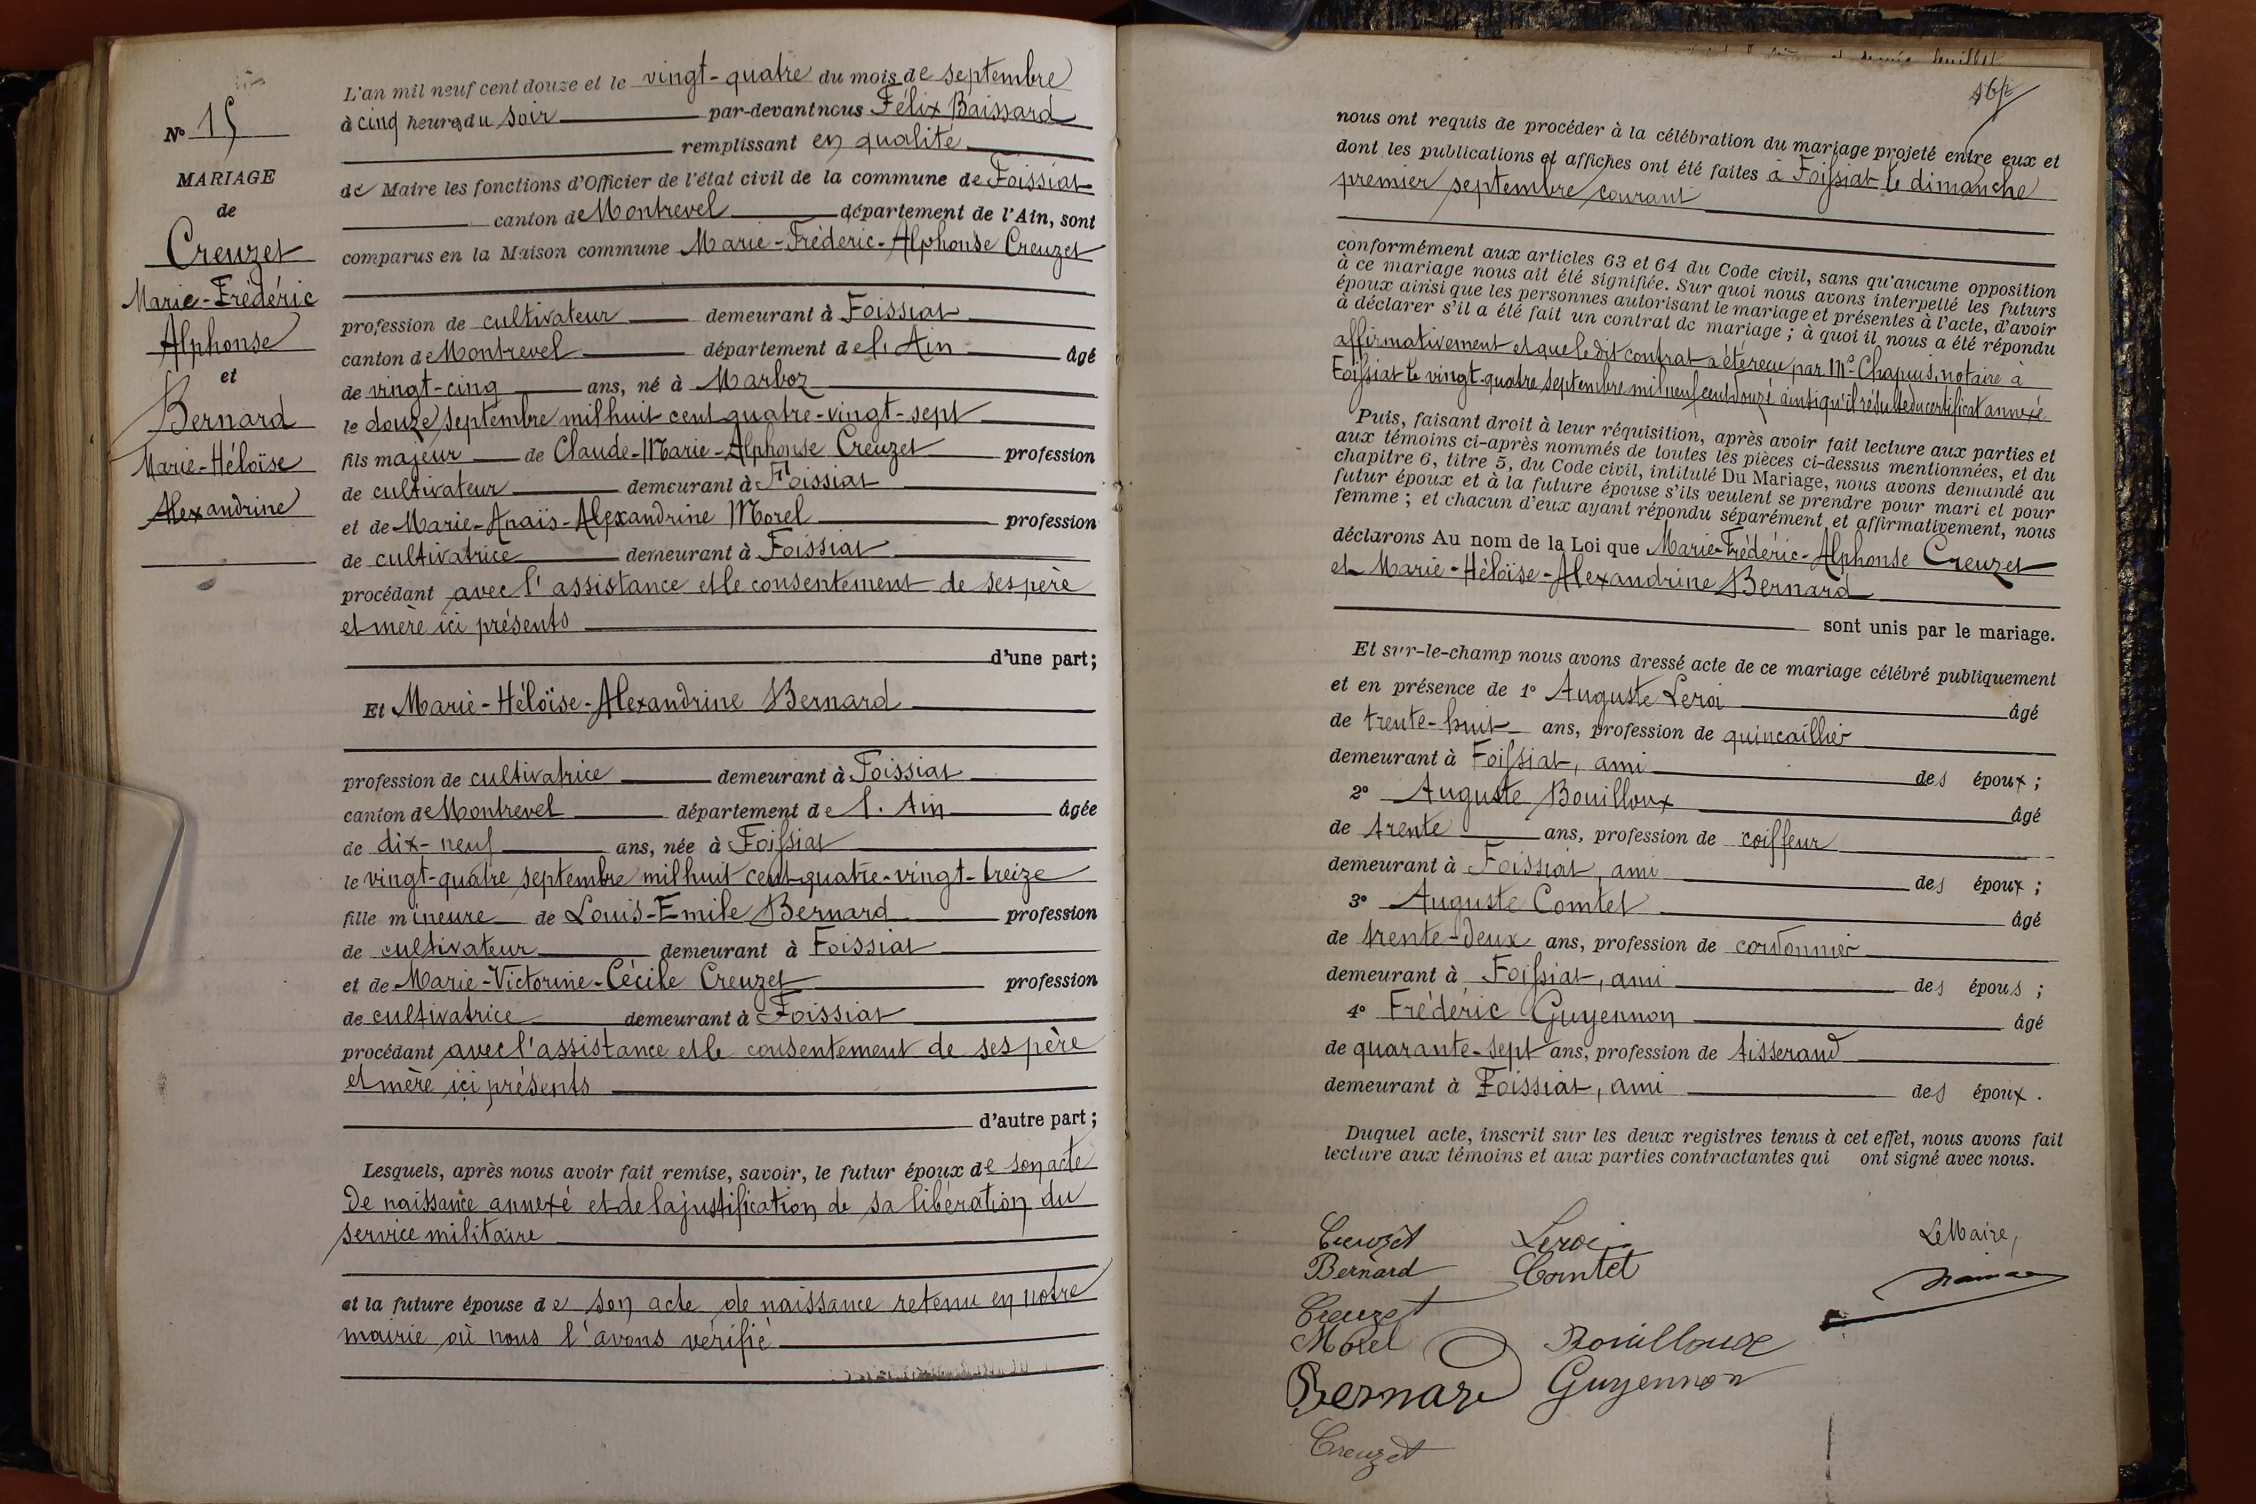 N° 15
MARIAGE
de
Creuzet
Marie-Frédéric
Alphonse
et
Bernard
Marie-Héloïse
Alexandrine
L'an mil neuf cent douze et le vingt-quatre du mois de septembre
à cinq heures du soir par-devant nous Félix Baissard
remplissant en qualité
de Maire les fonctions d'Officier de l'état civil de la commune de Foissiat
canton de Montrevel département de l'Ain, sont
comparus en la Maison commune Marie-Frédéric-Alphonse Creuzet
profession de cultivateur demeurant à Foissiat
canton de Montrevel département de l'Ain âgé
de vingt-cinq ans, né à Marboz
le douze septembre mil huit cent quatre-vingt-sept
fils majeur de Claude-Marie-Alphonse Creuzet profession
de cultivateur demeurant à Foissiat
et de Marie-Anaïs-Alexandrine Morel profession
de cultivatrice demeurant à Foissiat
procédant avec l'assistance et le consentement de ses père
et mère ici présents
d'une part;
Et Marie-Héloïse-Alexandrine Bernard
profession de cultivatrice demeurant à Foissiat
canton de Montrevel département de l'Ain âgée
de dix-neuf ans, née à Foissiat
le vingt-quatre septembre mil huit cent quatre-vingt-treize
fille mineure de Louis-Emile Bernard profession
de cultivateur demeurant à Foissiat
et de Marie-Victorine-Cécile Creuzet profession
de cultivatrice demeurant à Foissiat
procédant avec l'assistance et le consentement de ses père
et mère ici présents
d'autre part;
Lesquels, après nous avoir fait remise, savoir, le futur époux de son acte
de naissance annexé et de la justification de sa libération du
service militaire
et la future épouse de son acte de naissance retenu en notre
mairie où nous l'avons vérifié
nous ont requis de procéder à la célébration du mariage projeté entre eux et
dont les publications et affiches ont été faites à Foissiat le dimanche
premier septembre courant
conformément aux articles 63 et 64 du Code civil, sans qu'aucune opposition
à ce mariage nous ait été signifiée. Sur quoi nous avons interpellé les futurs
époux ainsi que les personnes autorisant le mariage et présentes à l'acte, d'avoir
à déclarer s'il a été fait un contrat de mariage; à quoi il nous a été répondu
affirmativement et que le dit contrat a été reçu par Me Chapuis, notaire à
Foissiat le vingt-quatre septembre mil neuf cent douze ainsi qu'il résulte du certificat annexé
Puis, faisant droit à leur réquisition, après avoir fait lecture aux parties et
aux témoins ci-après nommés de toutes les pièces ci-dessus mentionnées, et du
chapitre 6, titre 5, du Code civil, intitulé Du Mariage, nous avons demandé au
futur époux et à la future épouse s'ils veulent se prendre pour mari et pour
femme; et chacun d'eux ayant répondu séparément et affirmativement, nous
déclarons Au nom de la Loi que Marie-Frédéric-Alphonse Creuzet
et Marie-Héloïse-Alexandrine Bernard
sont unis par le mariage.
Et sur-le-champ nous avons dressé acte de ce mariage célébré publiquement
et en présence de 1° Auguste Leroi âgé
de trente-huit ans, profession de quincaillier
demeurant à Foissiat, ami des époux;
2° Auguste Bouilloux âgé
de trente ans, profession de coiffeur
demeurant à Foissiat, ami des époux;
3° Auguste Comtet âgé
de trente-deux ans, profession de cordonnier
demeurant à Foissiat, ami des épous;
4° Frédéric Guyennon âgé
de quarante-sept ans, profession de tisserand
demeurant à Foissiat, ami des époux.
Duquel acte, inscrit sur les deux registres tenus à cet effet, nous avons fait
lecture aux témoins et aux parties contractantes qui ont signé avec nous.
Creuzet Leroi Le Maire,
Bernard Comtet
Creuzet
Morel Bouilloux
Bernard Guyennon
Creuzet